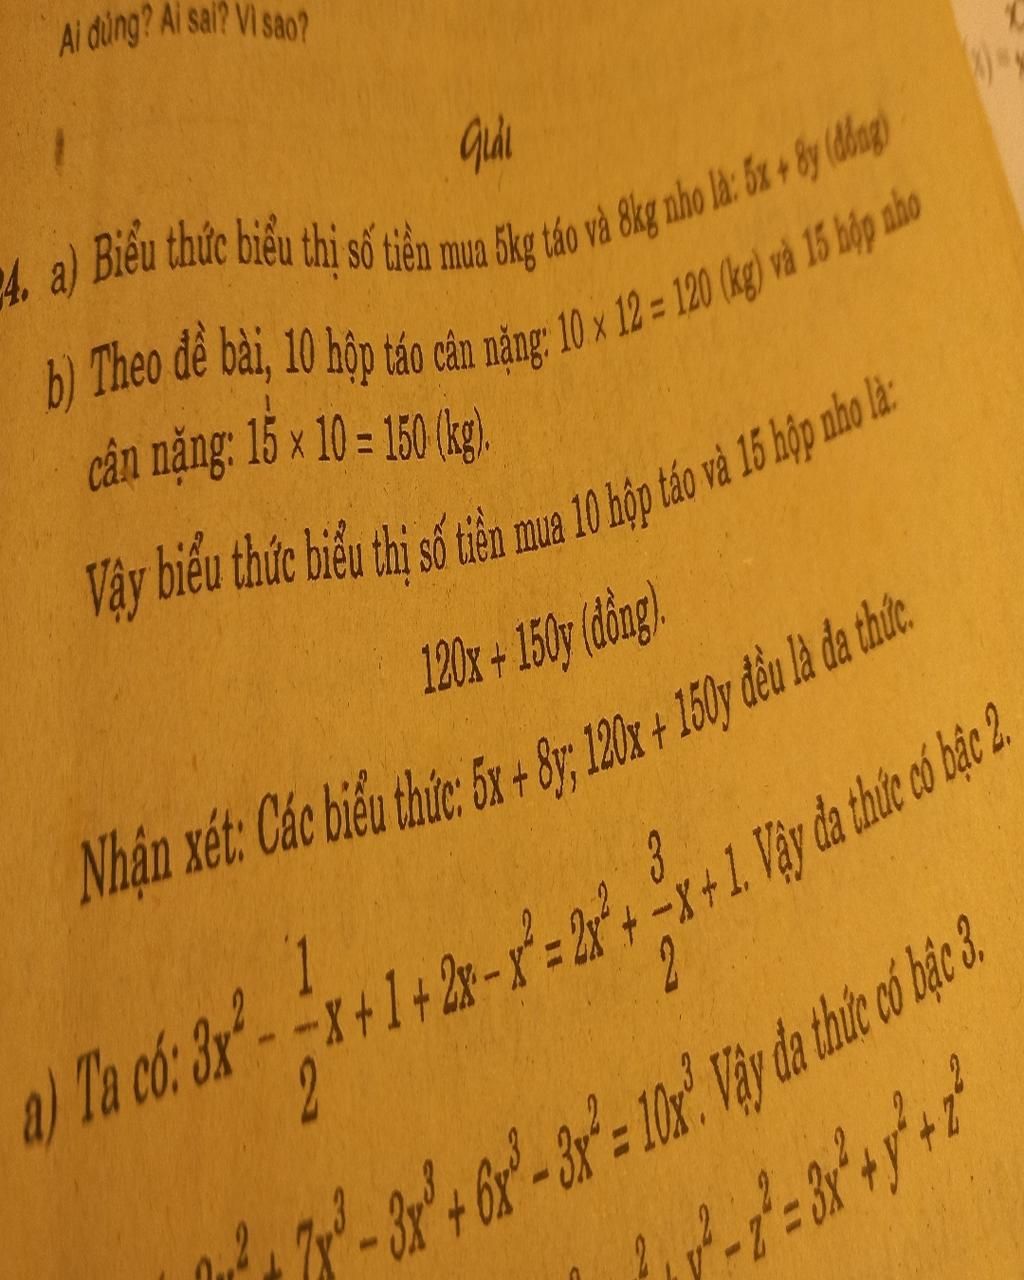 Ai đúng? Ai sai? Vì sao?
Giải
24. a) Biểu thức biểu thị số tiền mua 5kg táo và 8kg nho là: 5x + 8y (đồng)
b) Theo đề bài, 10 hộp táo cân nặng: 10 × 12 = 120 (kg) và 15 hộp nho
cân nặng: 15 × 10 = 150 (kg).
Vậy biểu thức biểu thị số tiền mua 10 hộp táo và 15 hộp nho là:
120x + 150y (đồng).
Nhận xét: Các biểu thức: 5x + 8y; 120x + 150y đều là đa thức.
a) Ta có: 3x² - 1/2 x + 1 + 2x - x² = 2x² + 3/2 x + 1. Vậy đa thức có bậc 2.
+ 7x³ - 3x³ + 6x³ - 3x² = 10x³. Vậy đa thức có bậc 3.
y² - z² = 3x² + y² + z²